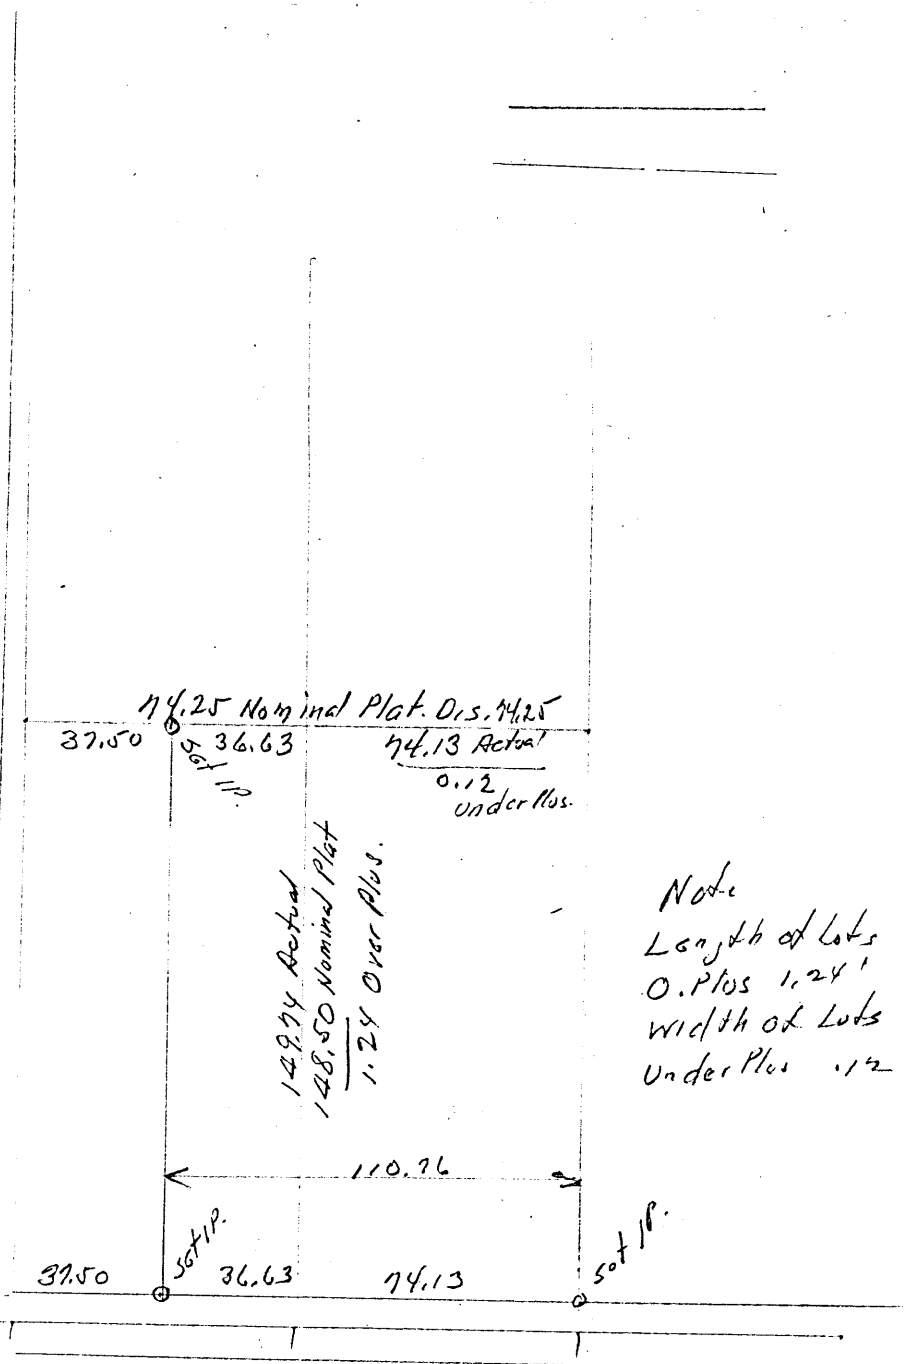 74.25 Nominal Plat. Dis. 74.25
37.50 36.63 74.13 Actual
Set IP.
0.12
Under Plus.
149.74 Actual
148.50 Nominal Plat
1.24 Over Plus.
Note
Length of Lots
O. Plus 1.24'
Width of Lots
Under Plus .12
110.76
Set IP.
Set IP.
37.50 36.63 74.13